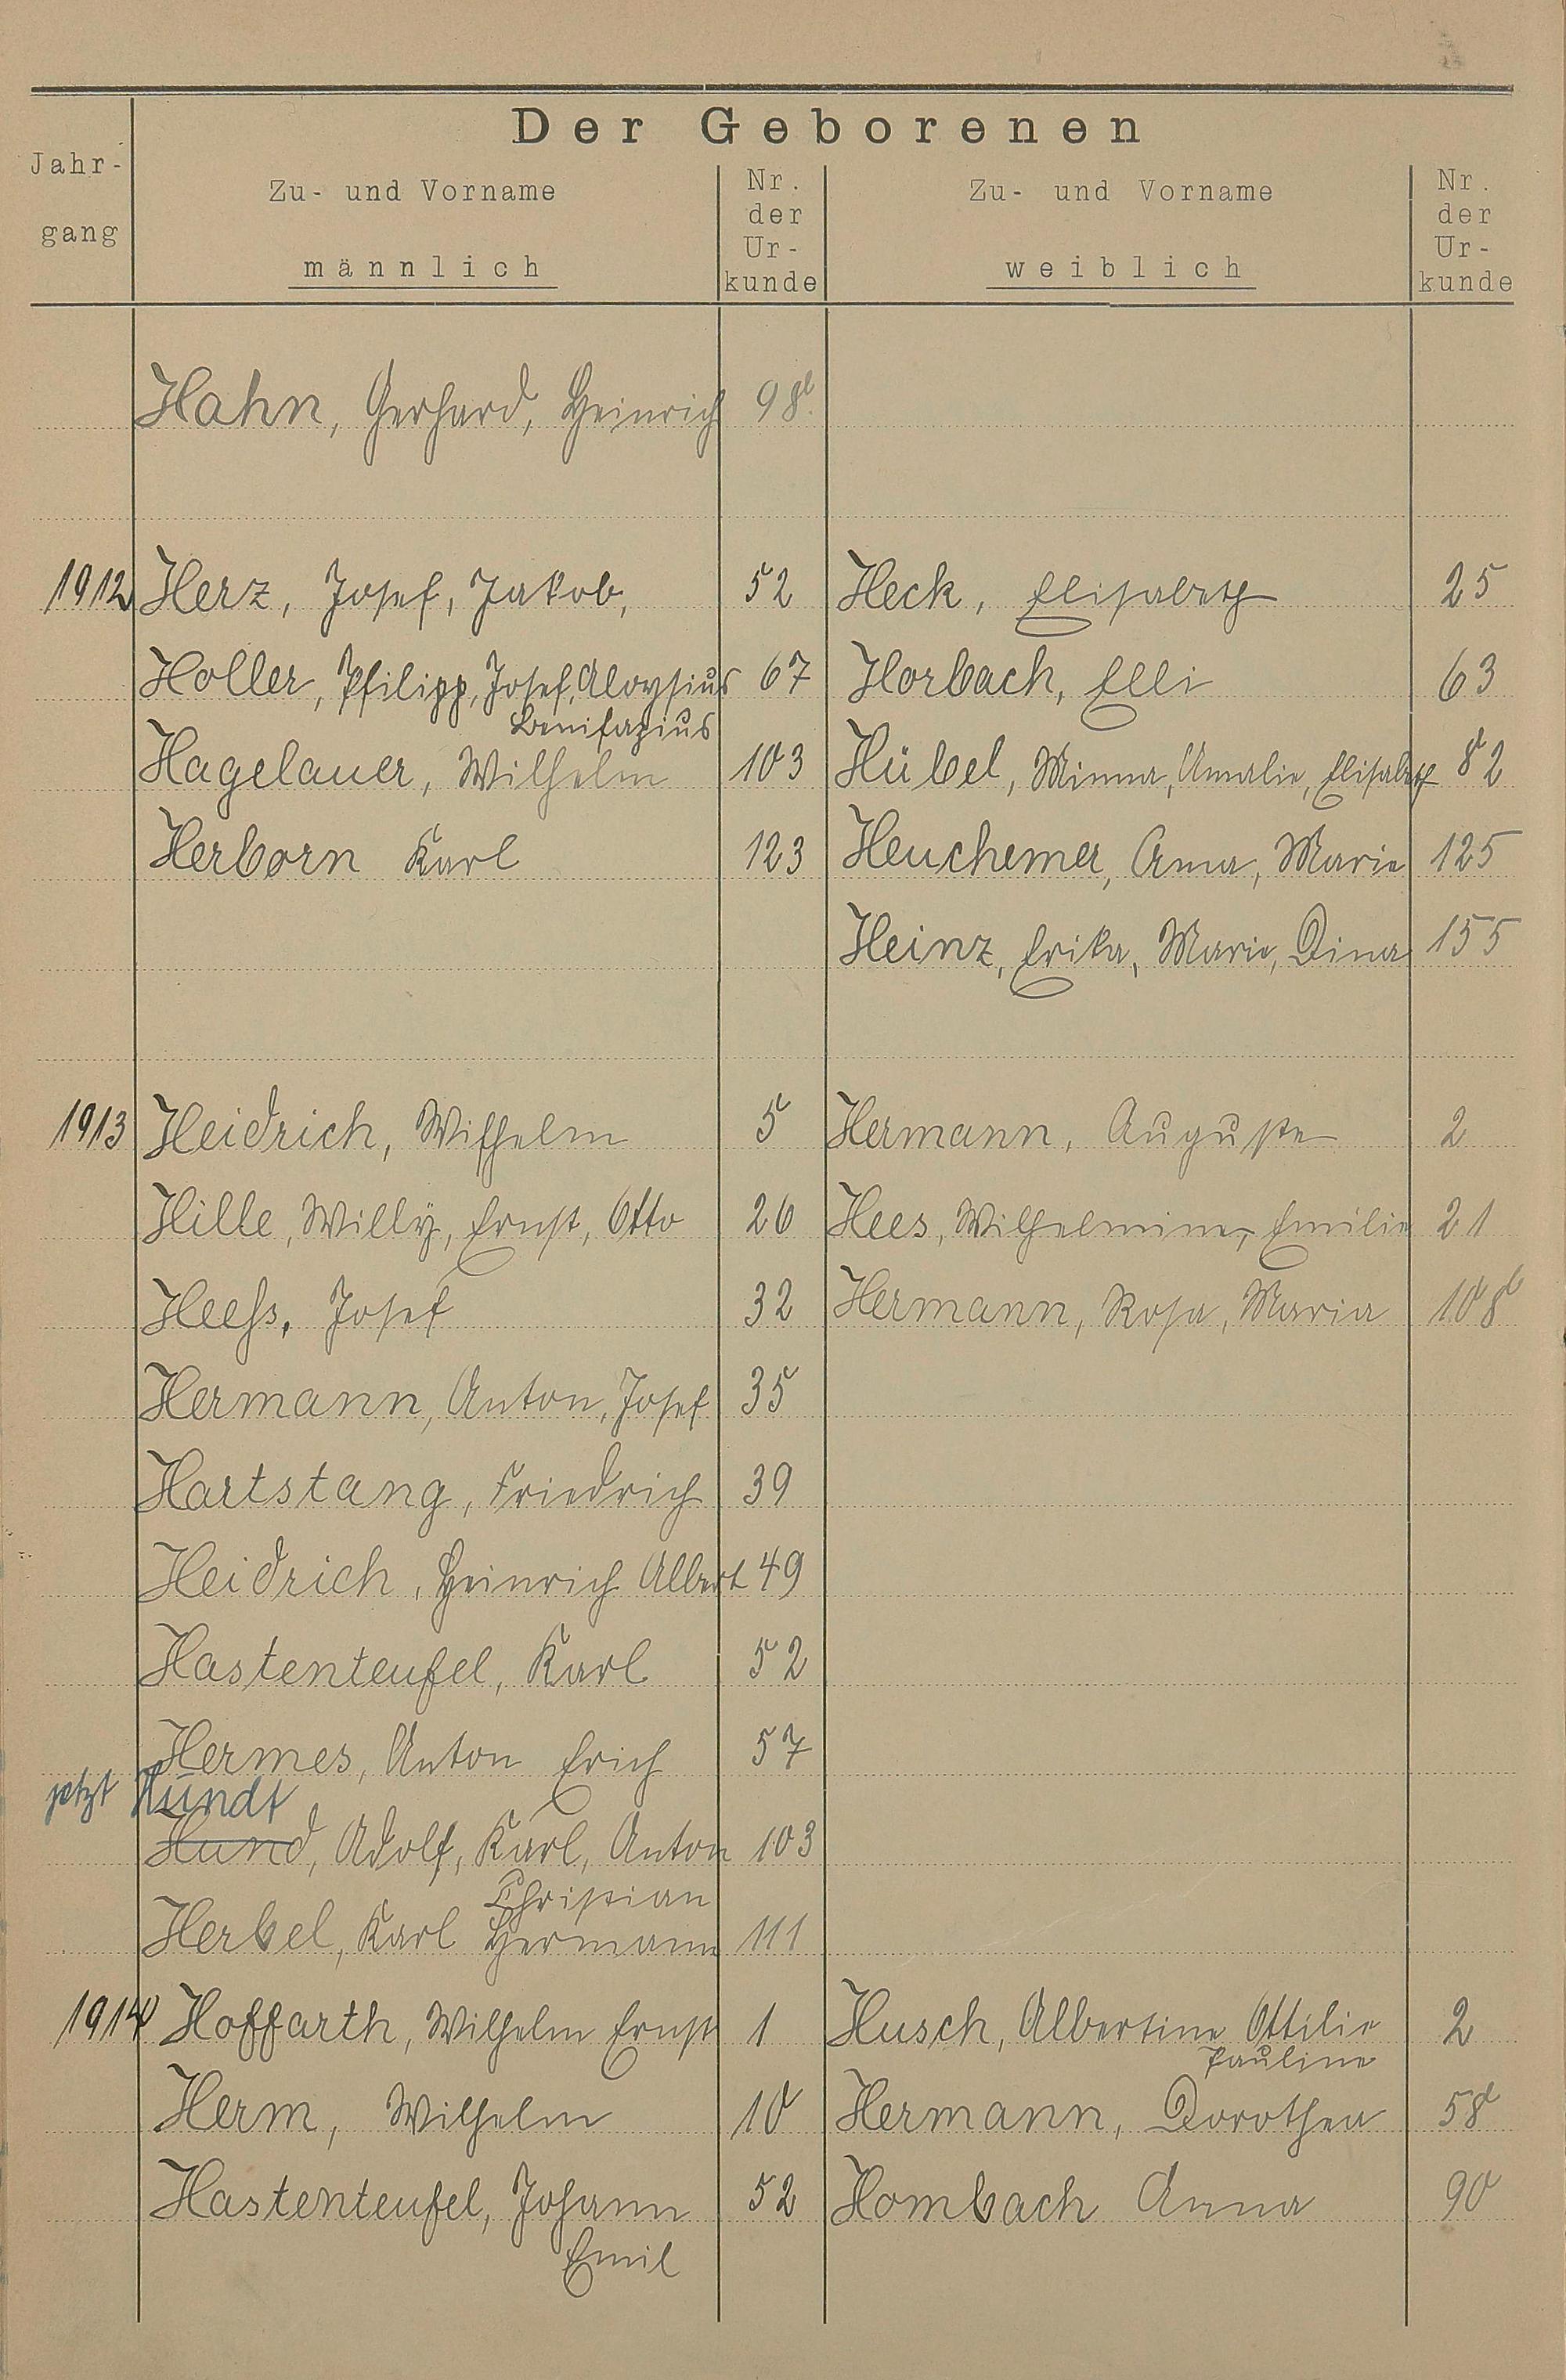 Der Geborenen
Jahr-
gang
Zu- und Vorname
männlich
Nr.
der
Ur-
kunde
Zu- und Vorname
weiblich
Nr.
der
Ur-
kunde
Hahn, Gerhard, Heinrich 98.
1912 Herz, Josef, Jakob, 52 Heck, Elisabeth 25
Holler, Philipp, Josef, Aloysius 67 Horbach, Elli 63
Bonifazius
Hagelauer, Wilhelm 103 Hübel, Minna, Amalie, Elisabeth 82
Herborn Karl 123 Heuchemer, Anna, Marie 125
Heinz, Erika, Marie, Dina 155
1913 Heidrich, Wilhelm 5 Hermann, Auguste 2
Hille, Willÿ, Ernst, Otto 26 Hees, Wilhelmine, Emilie 21
Heess, Josef 32 Hermann, Rosa, Maria 108
Hermann, Anton, Josef 35
Hartstang, Friedrich 39
Heidrich, Heinrich Albert 49
Hastenteufel, Karl 52
Hermes, Anton Erich 57
jetzt Hundt
Hund, Adolf, Karl, Anton 103
Christian
Herbel, Karl Hermann 111
1914 Hoffarth, Wilhelm Ernst 1 Husch, Albertine Ottilie 2
Pauline
Herm, Wilhelm 10 Hermann, Dorothea 58
Hastenteufel, Johann 52 Hombach Anna 90
Emil